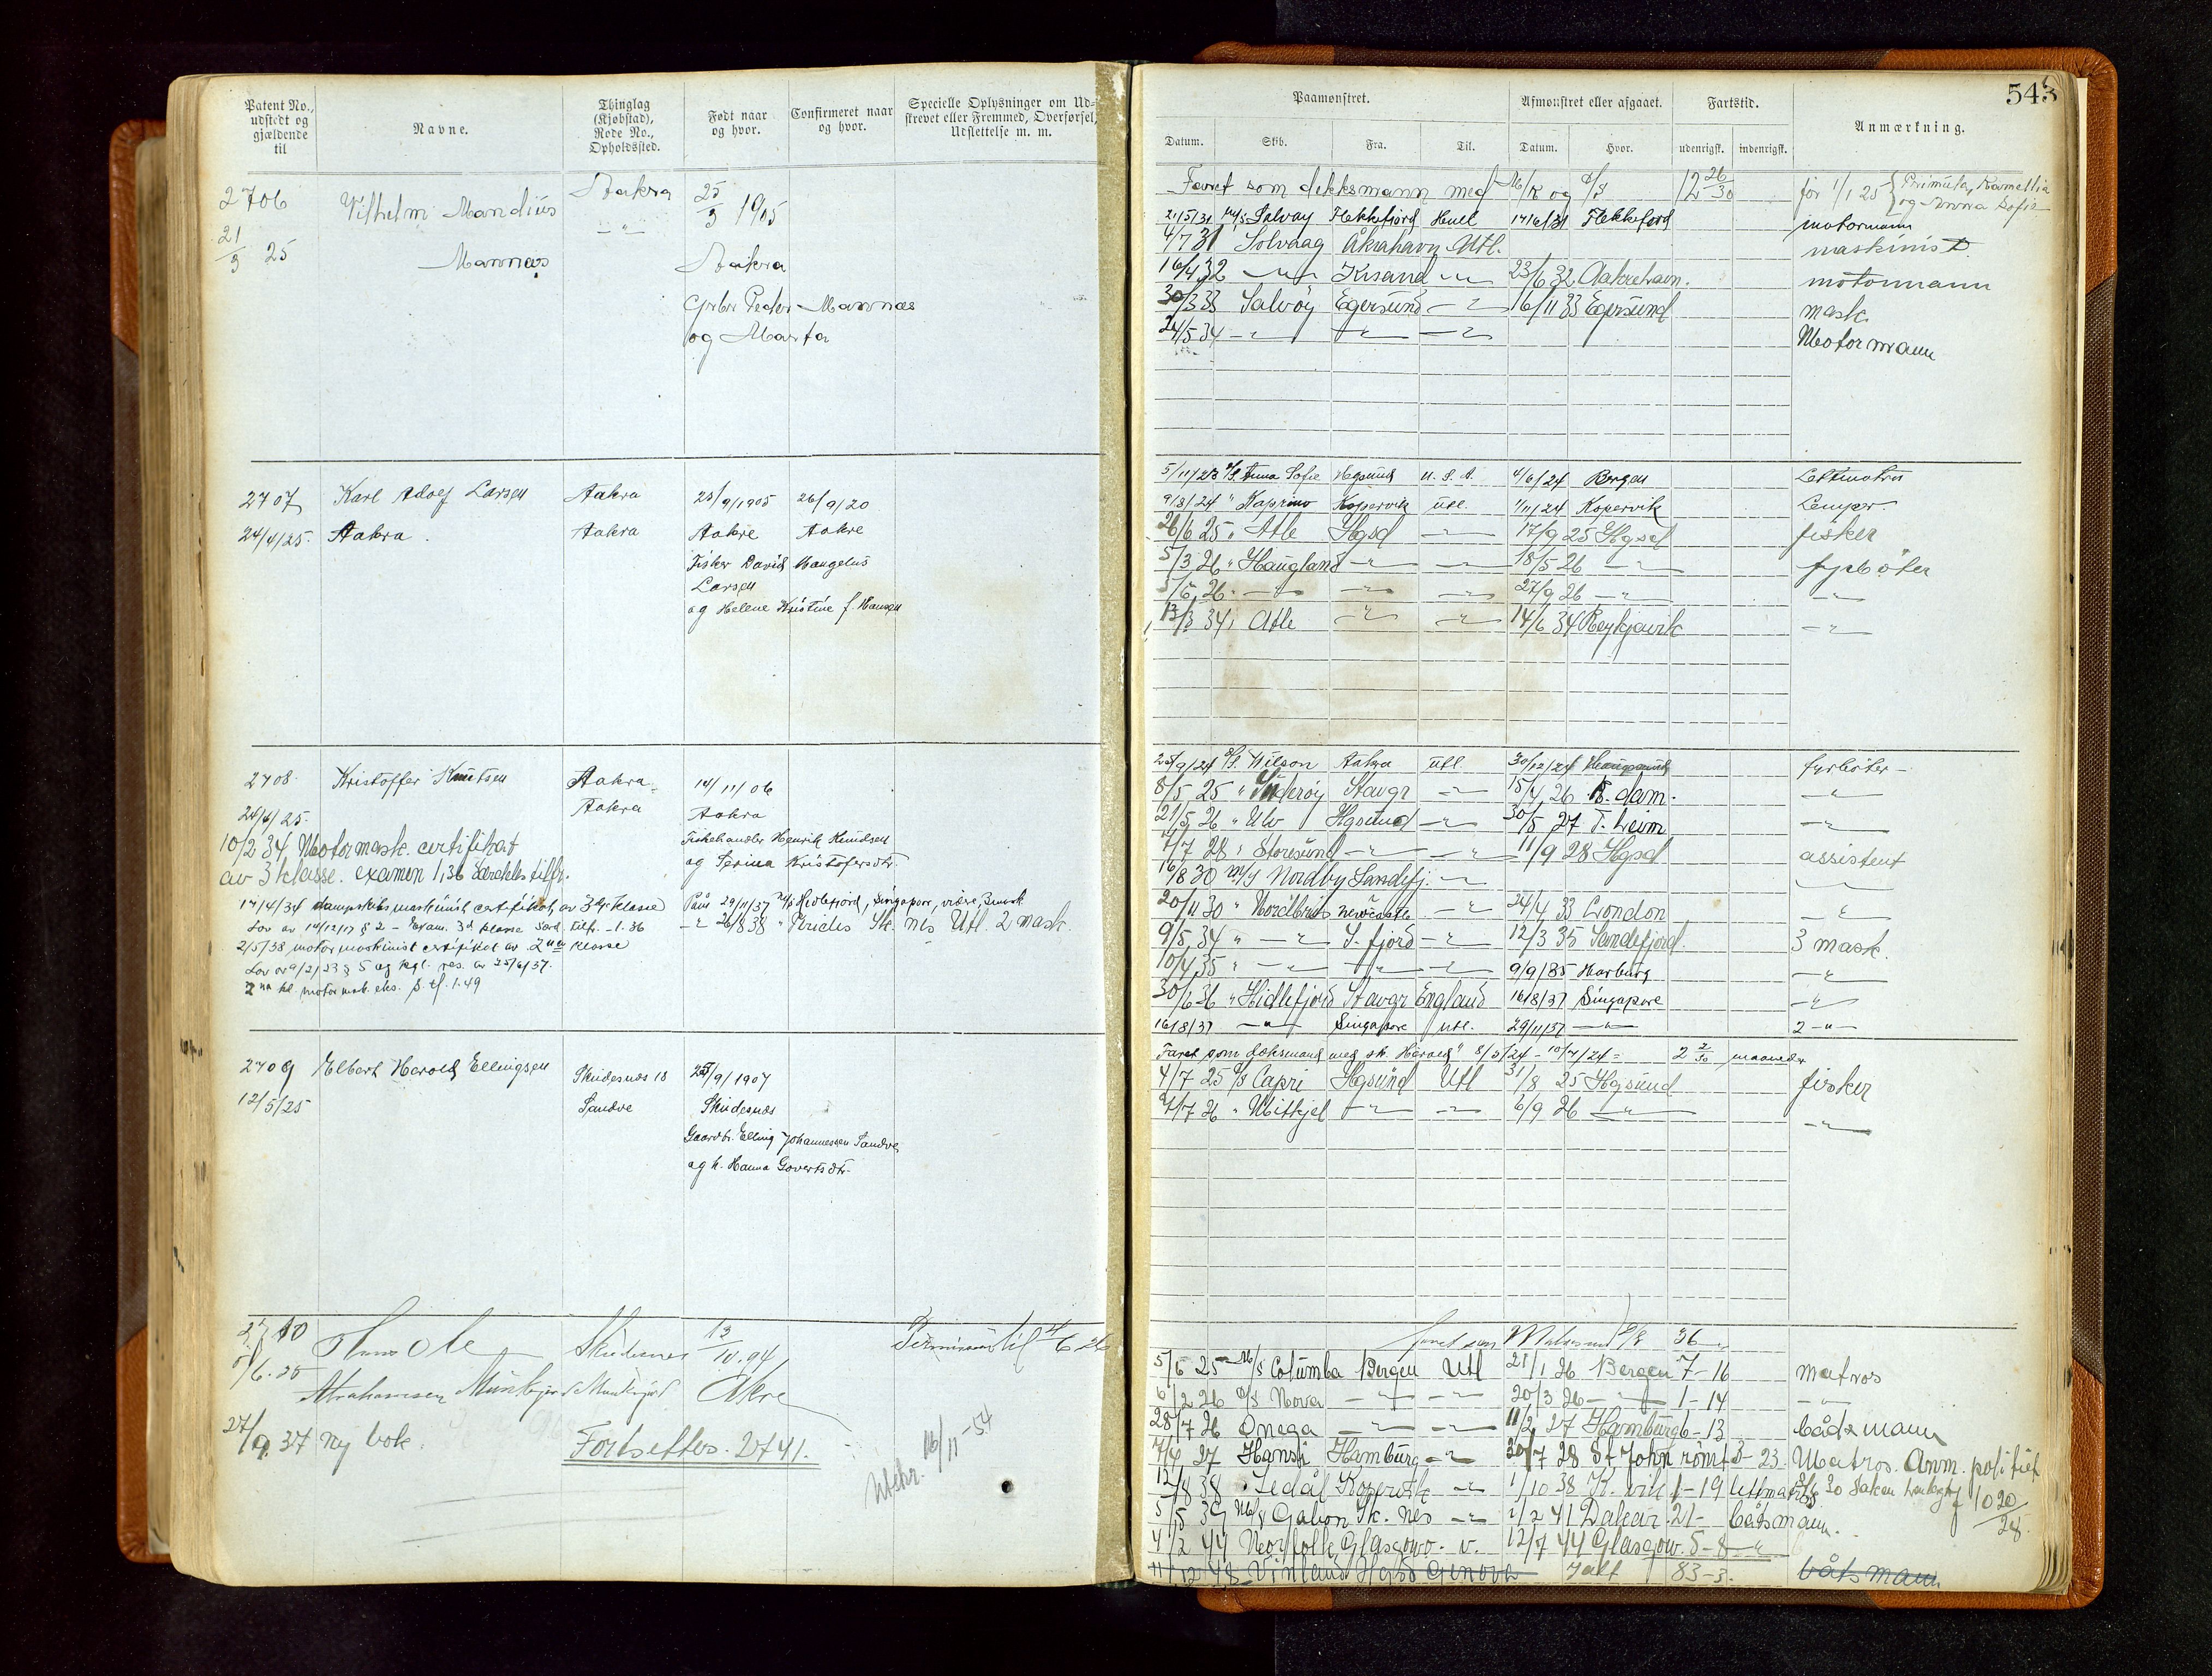 Patent No., udstedt og gjældende til | Navne. | Thinglag (Kjøbstad), Rode No., Opholdssted. | Født naar og hvor. | Confirmeret naar og hvor. | Specielle Oplysninger om Udskrevet eller Fremmed, Overførsel, Udslettelse m. m.
2706 Vilhelm Mandius Aakra 25/3 1905
21/3 25 Mannes - " - Aakra
Peder Mannes
og Marta
2707 Karl Adolf Larsen Aakra 25/9/1905 26/9/20
24/4/25. Aakra. Aakra Aakre Aakre
Fisker David Mangelus
Larsen
og Helene Kristine f. Hansen
2708 Kristoffer Knutsen Aakra 14/11/06
24/4/25. Aakra Aakra
Fiskehandler Henrik Knudsen
og Serina Kristofersdtr.
10/2 34 Motormask. certifikat
av 3 klasse. examen 1,36 særskl. tilfr.
17/4/34 dampskibsmaskinist certifikat av 3dje klasse
Lov av 14/12/17 § 2 - Exam. 3dj klasse særd. tilfr. - 1.36
2/5/38 motormaskinist certifikat av 2nen klasse
Lov av 9/2/23 § 5 og kgl. res. av 25/6/37.
2nn kl. motormask. eks. S. tf. 1.49
Påm 29/11/37 M/S Hidlefjord, Singapore, videre, 2 mask
- " 26/8 38 " Sk. nes Utl. 2 mask.
2709 Elbert Harold Ellingsen Skudesnes 18 25/9/1907
12/5/25 Sandve Skudesnes
Gaardbr. Elling Johannessen Sandve
og h. Hanna Govertsdtr.
2710 Hans Ole Skudenes 13/10.94
5/6.25 Abrahamsen Munkejord Munkejord Åkre
til 4/6 26
27/9 37 ny bok. Fortsettes. 2741.
Utskr. 16/11-54
543
Paamønstret. | Afmønstret eller afgaaet. | Fartstid. | Anmærkning.
Datum. | Skib. | Fra. | Til. | Datum. | Hvor. | udenrigsk. | indenrigsk.
Faret som dekksmann med M/K og S/S 12 26/30 før 1/1 25 { Primula, Kamellia og Anna Sofie
21/5/31 M/S Salvøy Flekkefjord Hull 17/6/31 Flekkefjord motormann
4/7 31 Solvaag Åkrahavn Utl. maskinist.
16/4 32 - " - Krsand - " - 23/6 32 Aakrehavn. motormann
30/3 33 Salvøy Egersund - " - 16/11 33 Egersund mask.
24/5 34 - " - - " - - " - Motormann
5/11/23 S/S. Anna Sofie Hgsund U. S. A. 4/6/24 Bergen Lettmatros
9/8/24 " Kaprino Kopervik Utl. 1/11/24 Kopervik Lemper.
26/6 25 " Atle Hgsd - " - 17/9 25 Hgsd fisker
5/3 26 " Haugland - " - - " - 18/5 26 - " - fyrbøter
5/6 26. - " - - " - - " - 27/9 26 - " - - " -
13/3 34, Atle - " - - " - 14/6 34 Reykjavik - " -
25/9/24 S/S. Wilson Aakra Utl. 30/12/24 Haugesund fyrbøter -
8/5 25 " Suderøy Stavgr - " - 15/4 26 R. dam. - " -
21/5 26 " Ulv Hgsund - " - 30/5 27 T. heim - " -
4/7 28 " Storesund - " - - " - 11/9 28 Hgsd assistent
16/8 30 M/S Nordby Sandefj. - " - - " -
20/11 30 " Nordbris Newcastle - " - 24/4 33 London - " -
9/5 34 " - " - S. fjord - " - 12/3 35 Sandefjord. 3 mask.
10/4 35 " - " - - " - - " - 9/9/35 Harburg - " -
30/6 36 " Hidlefjord Stavgr England 16/8/37 Singapore - " -
16/8/37 - " - Singapore Utl. 29/11/37 - " - 2 - " -
Faret som dæksmand med sk. "Harald" 8/5/24 - 10/7/24 = 2 2/30 maaneder
4/7 25 S/S Capri Hgsund Utl 31/8 25 Hgsund fisker
4/7 26 " Mitkjel - " - - " - 6/9 26 - " - - " -
faret som Matros S/S 36 -
5/6 25 M/S Columba Bergen Utl 21/1 26 Bergen 7-16 matros
6/2 26 S/S Nova - " - - " - 20/3 26 - " - 1-14 - " -
28/7 26 Onega - " - - " - 11/2 27 Hamburg 6-13 bådsmann
7/6 27 Hansi Hamburg - " - 30/7 28 St John rømt - 23. Matros. Anm. politiet
12/8 38 Sedal Kopervik - " - 1/10 38 K. vik 1-19 lettmatros
5/5 39 M/S Gabon Sk. nes - " - 1/2 41 Dakar 21- båtsmann.
4/2 44 Norfolk Glasgow. v. 12/7 44 Glasgow. 5-8 - " -
11/12 48 Vinland Hgsd Genova Ialt 83-3. båtsmann